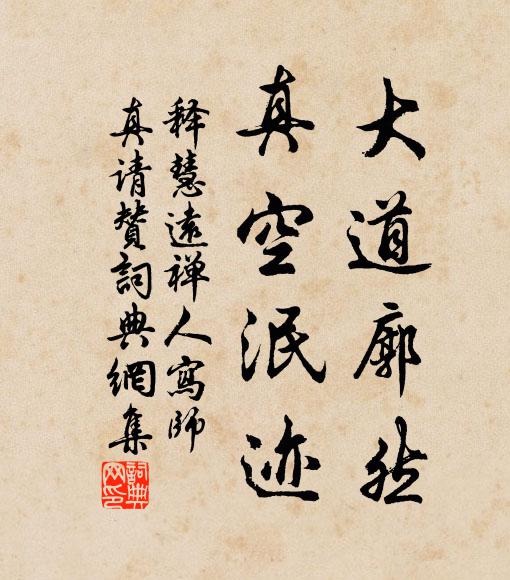 大道廓然
真空泯迹
释慧遠禅人寫師
真请赞詞典網集
詞典
网印